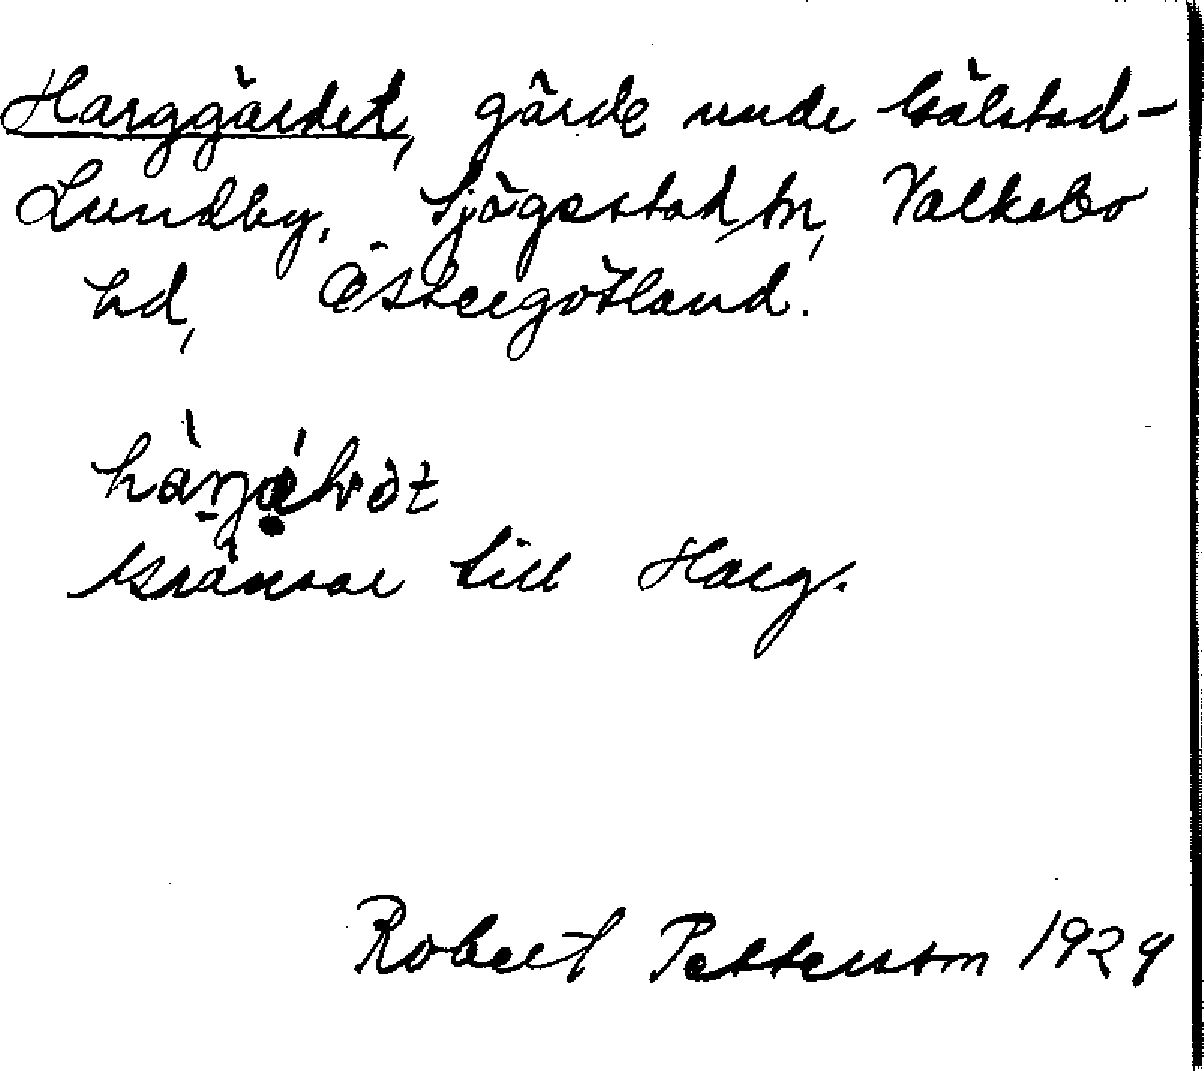 Harggärdet, gärde unde Gälstad-
Lundby, Sjögestad sn, Valkebo
hd, Östergötland.
Gränsar till Harg.
Robert Petterson 1929